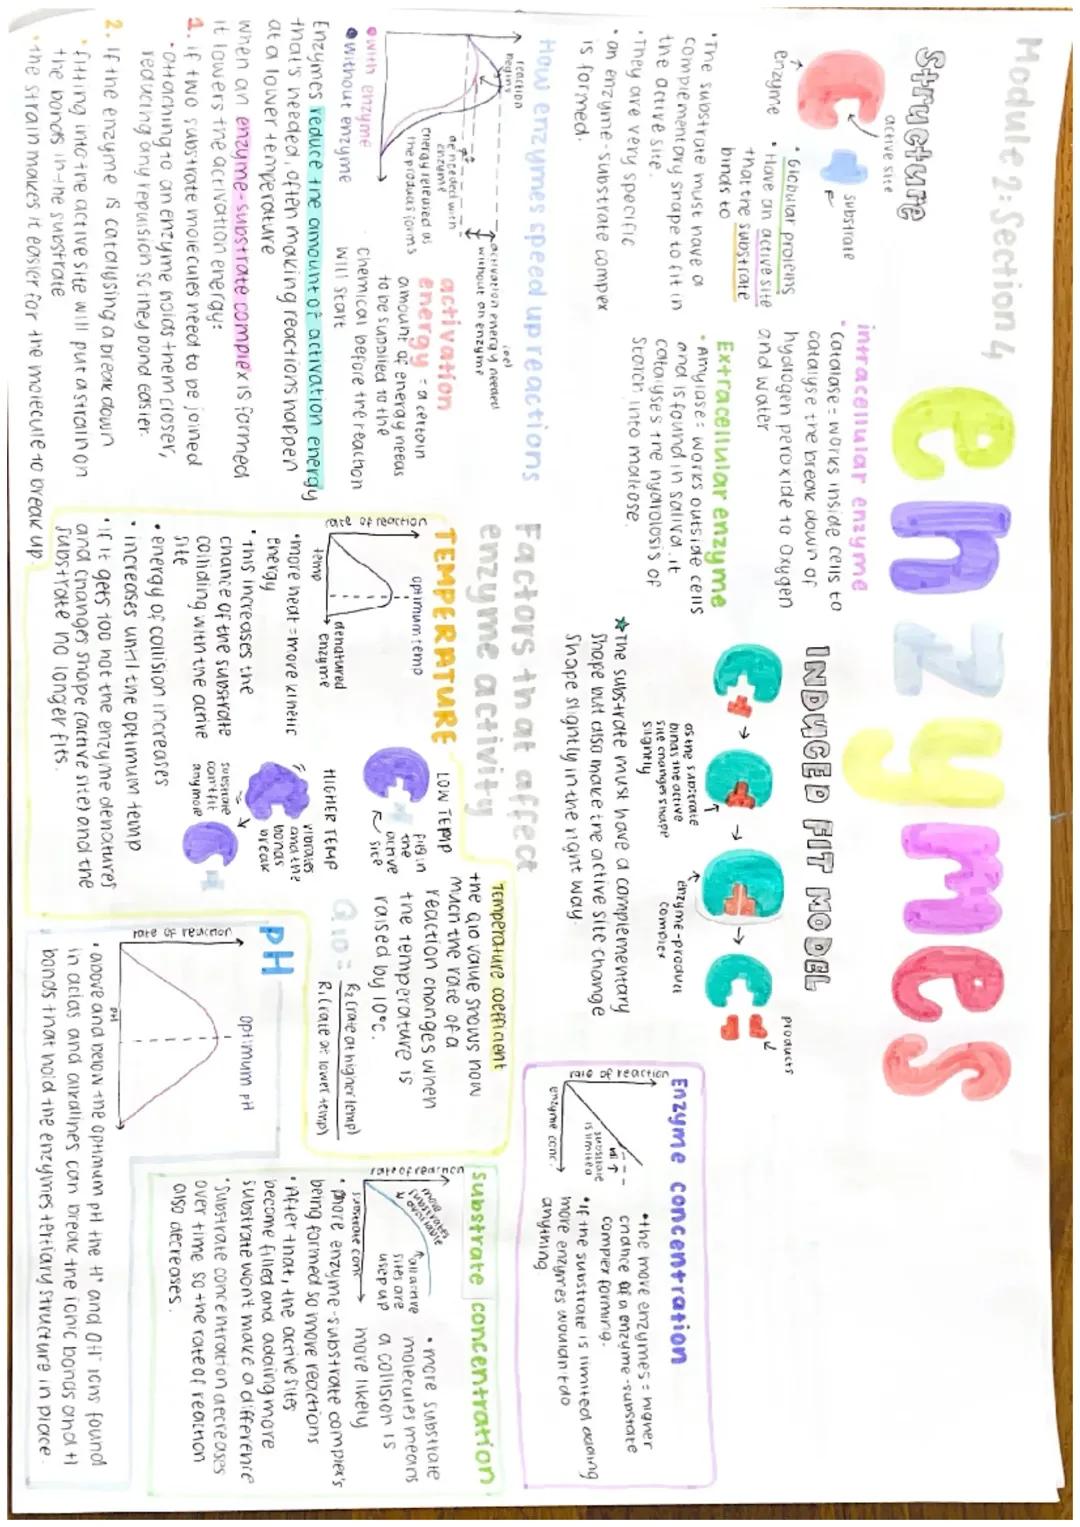 Module 2: Section 4
enzymes
Structure
active site
substrate
enzyme
• Globular proteins
• Have an active site
that the substrate
binds to
• The substrate must have a
complementary shape to fit in
the active site.
• They are very specific
• an enzyme-substrate complex
is formed.
intracellular enzyme
• Catalase = works inside cells to
catalyse the break down of
hydrogen peroxide to oxygen
and water
Extracellular enzyme
• Amylase = works outside cells
and is found in saliva. it
catalyses the hydrolosis of
starch into maltose.
INDUCED FIT MODEL
as the substrate
binds the active
site changes shape
slightly
enzyme-product
complex
products
★ The substrate must have a complementary
shape but also make the active site change
shape slightly in the right way.
How enzymes speed up reactions
reaction
begins
activation energy needed
without an enzyme
ae needed with
enzyme
energy released as
the product forms
• with enzyme
• without enzyme
activation
energy = a certain
amount of energy needs
to be supplied to the
chemical before the reaction
will start
Enzymes reduce the amount of activation energy
that's needed, often making reactions happen
at a lower temperature
when an enzyme-substrate complex is formed
it lowers the activation energy:
1. if two substrate molecules need to be joined
• attaching to an enzyme holds them closer,
reducing any repulsion so they bond easier.
2. If the enzyme is catalysing a break down
• fitting into the active site will put a strain on
the bonds in-ine substrate
• the strain makes it easier for the molecule to break up.
Factors that affect
enzyme activity
TEMPERATURE
optimum temp
rate of reaction
temp
denatured
enzyme
• more heat = more kinetic
energy
• this increases the
chane of the substrate
colliding with the active
site
• energy of collision increases
• increases until the optimum temp
• if it gets too hot the enzyme denatures
and changes shape (active site) and the
substrate no longer fits.
LOW TEMP
fits in
the
active
site
HIGHER TEMP
vibrates
and the
bonds
break
substrate
can't fit
anymore
Temperature coefficient
the Q10 value shows how
much the rate of a
reaction changes when
the temperature is
raised by 10°C.
Q10 = R2 (rate at higher temp)
R1 (rate at lower temp)
pH
optimum pH
rate of reaction
pH
• above and below the optimum pH the H+ and OH- ions found
in acids and alkalines can break the ionic bonds and H
bonds that hold the enzymes tertiary structure in place.
Enzyme concentration
rate of reaction
substrate
is limited
enzyme conc.
• the more enzymes = higher
chance of a enzyme-substrate
complex forming.
• If the substrate is limited adding
more enzymes wouldn't do
anything
substrate concentration
rate of reaction
more
substrates
available
all active
sites are
used up
substrate conc
• more substrate
molecules means
a collision is
more likely
• more enzyme-substrate complex's
being formed so more reactions
• After that, the active sites
become filled and adding more
substrate won't make a difference
• Substrate concentration decreases
over time so the rate of reaction
also decreases.